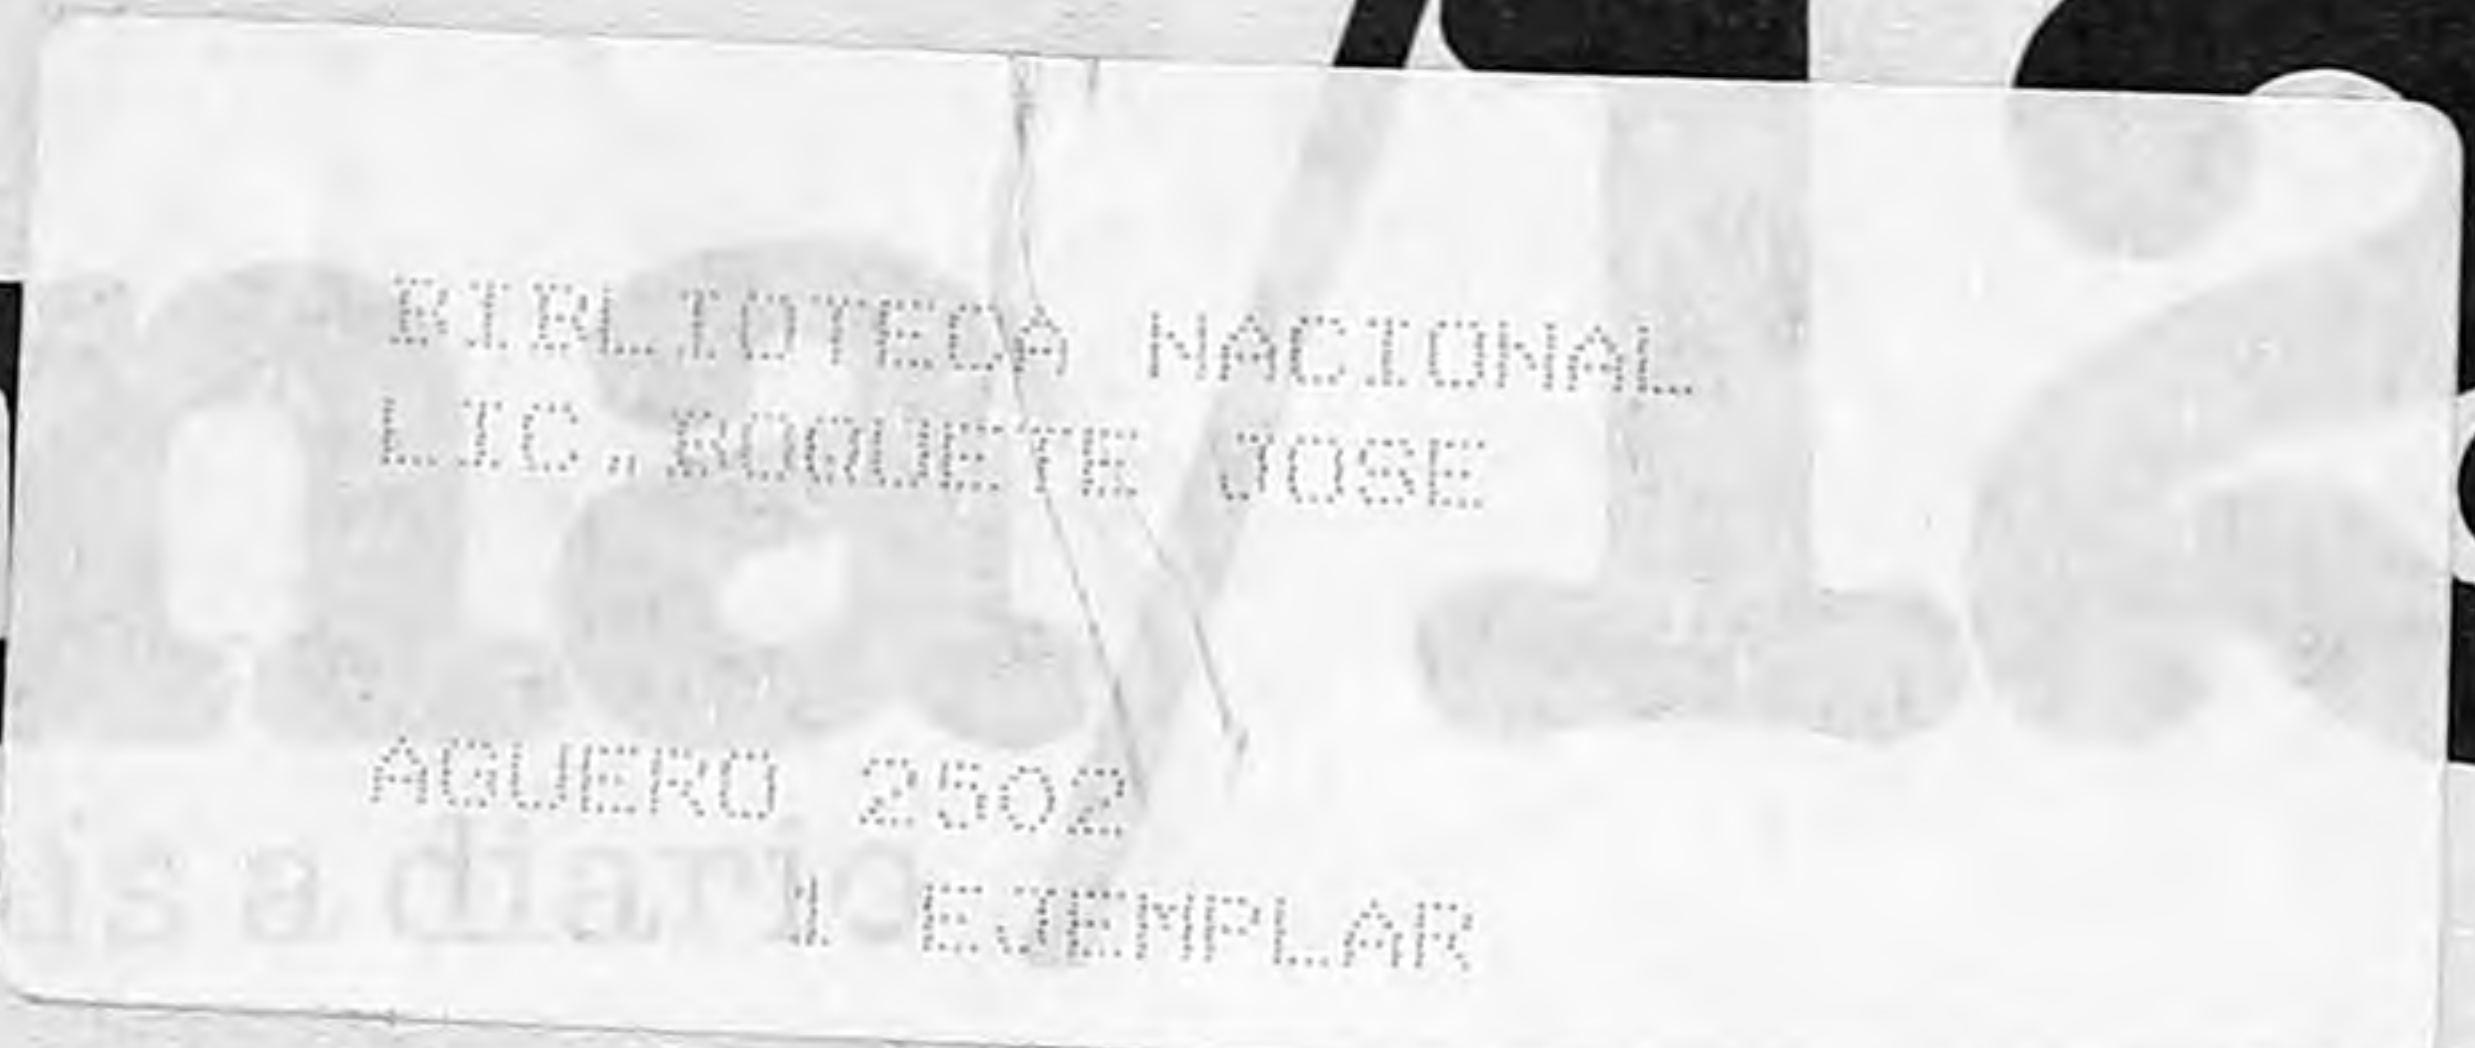 BIBLIOTECA NACIONAL
LIC. BOQUETE JOSE
AGUERO 2502
is a diario
1 EJEMPLAR